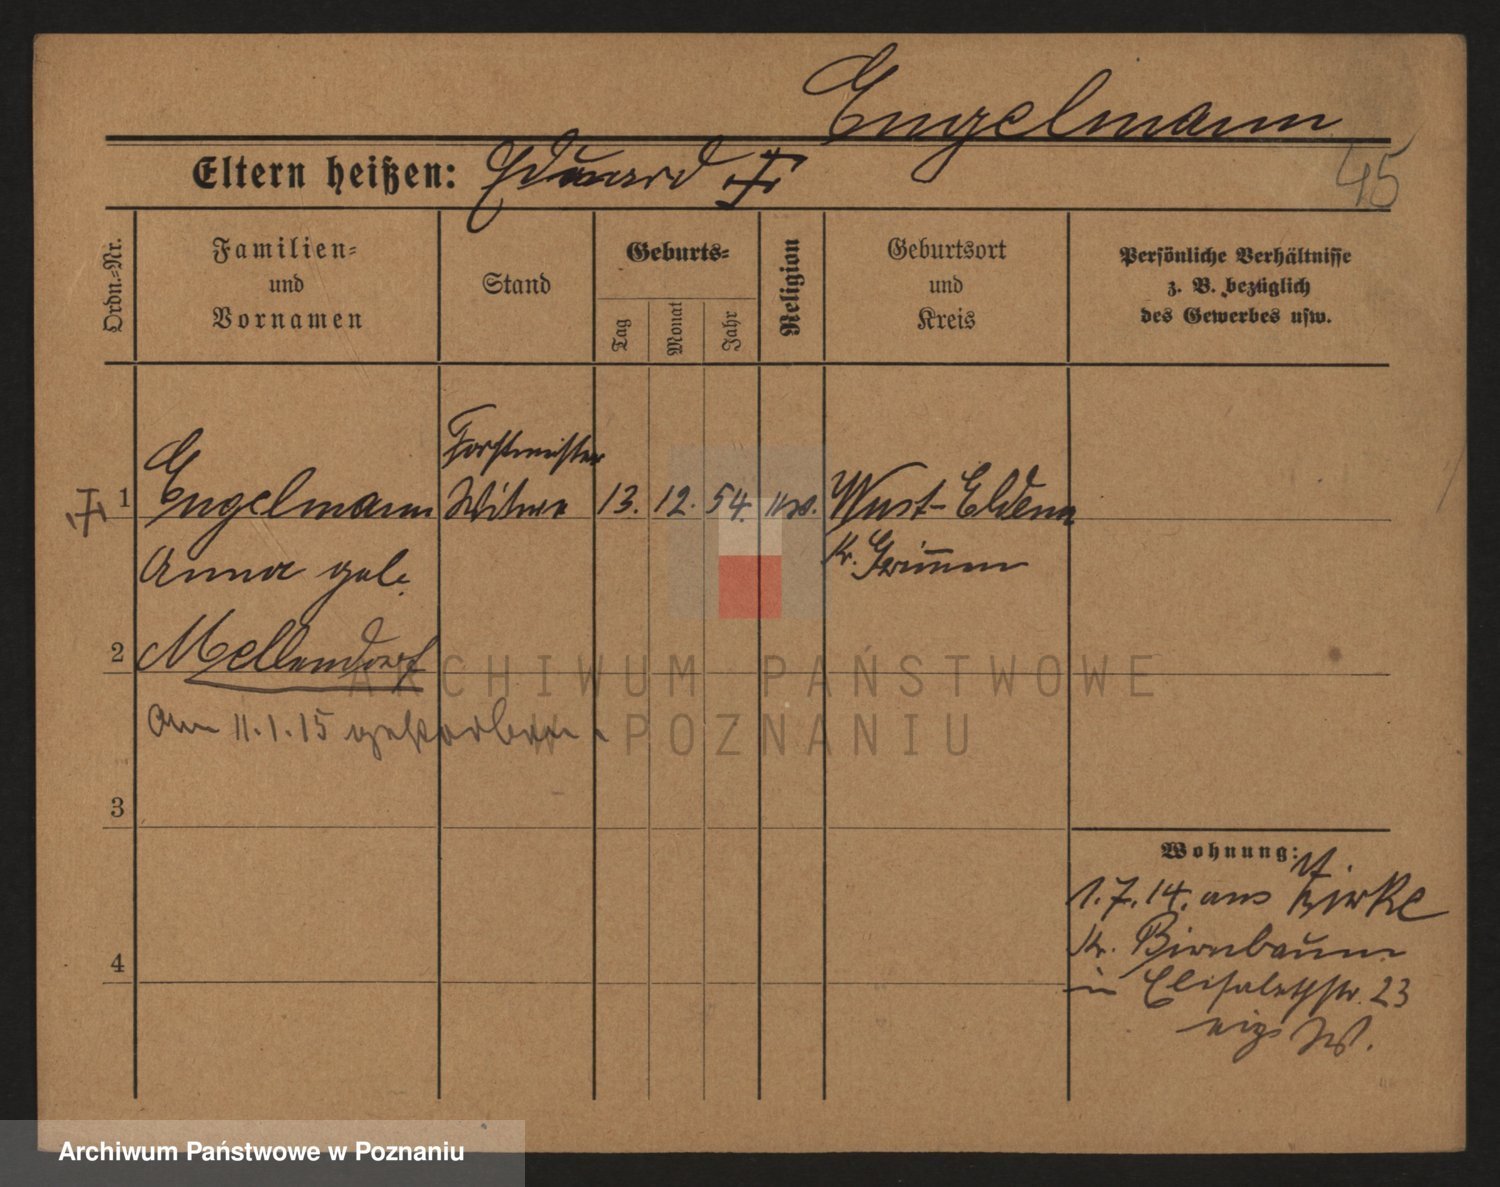 Engelmann
45
Eltern heißen: Eduard
Ordn.-Nr.
Familien-
und
Vornamen
Stand
Geburts-
Tag
Monat
Jahr
Religion
Geburtsort
und
Kreis
Persönliche Verhältnisse
z. B. bezüglich
des Gewerbes usw.
Forstmeister
1 Engelmann Witwe 13. 12. 54. ev. Wust-Eldena
Anna geb. Kr. Grimmen
2 Mellendorf
Am 11.1.15 gestorben.
3
4
Wohnung:
1.7.14. aus Zirke
Kr. Birnbaum
in Elisabethstr. 23
eig. W.
ARCHIWUM PAŃSTWOWE
W POZNANIU
Archiwum Państwowe w Poznaniu